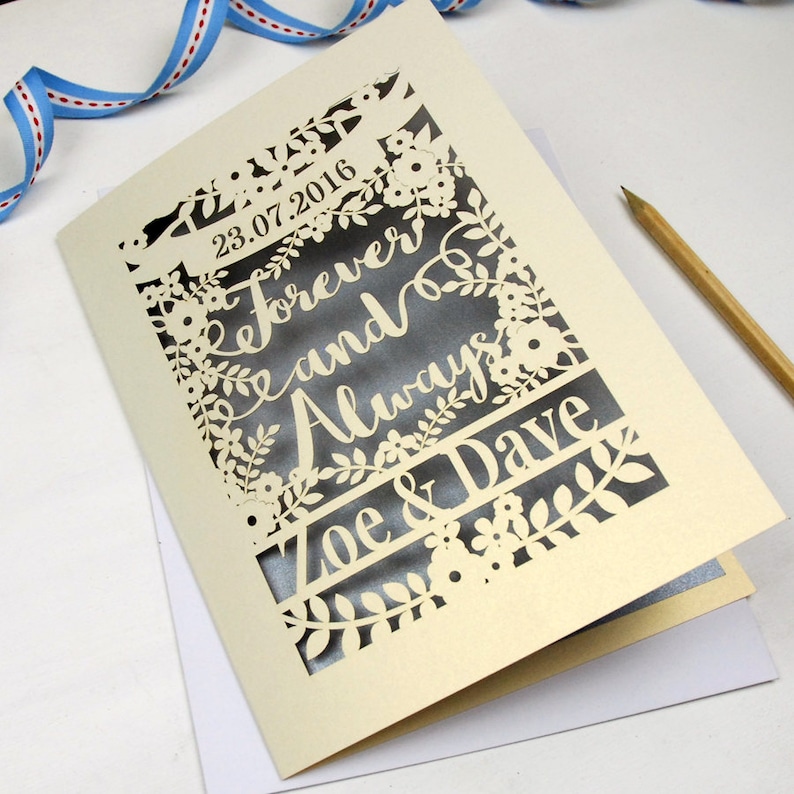 23.07.2016
Forever
and
Always
Zoe & Dave